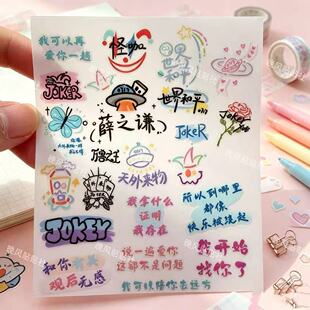 我可以再
爱你一遍
怪咖
世界
和平
JOKER
世界和平
(薛之谦)
JokeR
天外来物
我拿什么
证明
我存在
所以到哪里
都像
快乐被烧起
JOKEY
说一遍爱你
这都不是问题
我开始
找你了
和你有关
观后无感
我可以陪你去远方